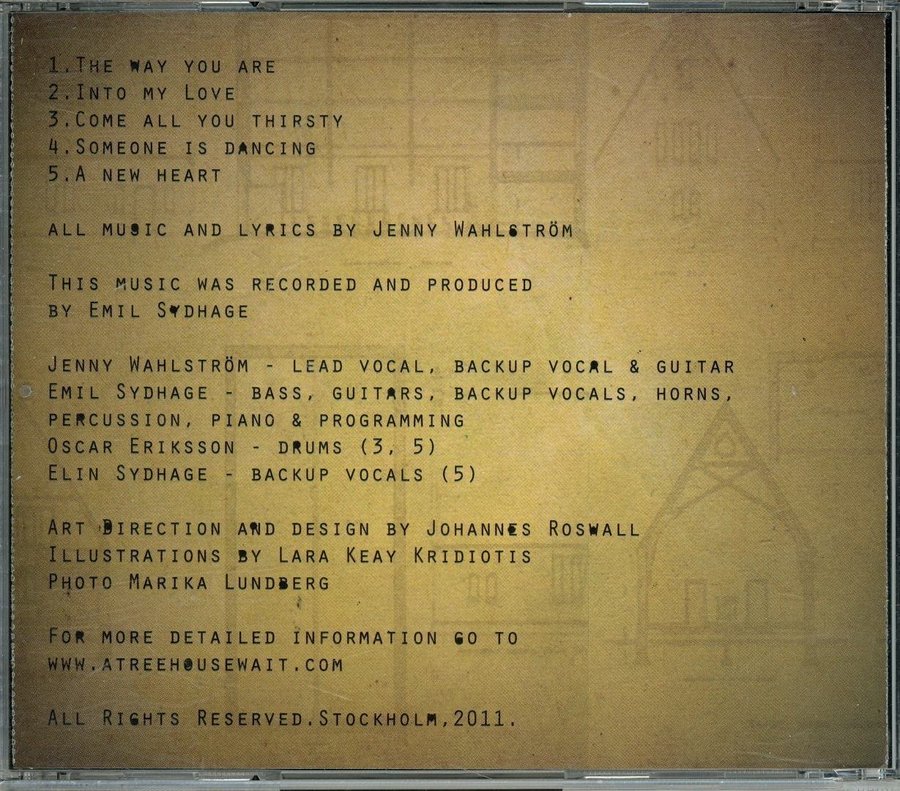 1.The way you are
2.Into my Love
3.Come all you thirsty
4.Someone is dancing
5.A new heart
all music and lyrics by Jenny Wahlström
This music was recorded and produced
by Emil Sydhage
Jenny Wahlström - lead vocal, backup vocal & guitar
Emil Sydhage - bass, guitars, backup vocals, horns,
percussion, piano & programming
Oscar Eriksson - drums (3, 5)
Elin Sydhage - backup vocals (5)
Art Direction and design by Johannes Roswall
Illustrations by Lara Keay Kridiotis
Photo Marika Lundberg
For more detailed information go to
www.atreehousewait.com
All Rights Reserved.Stockholm,2011.